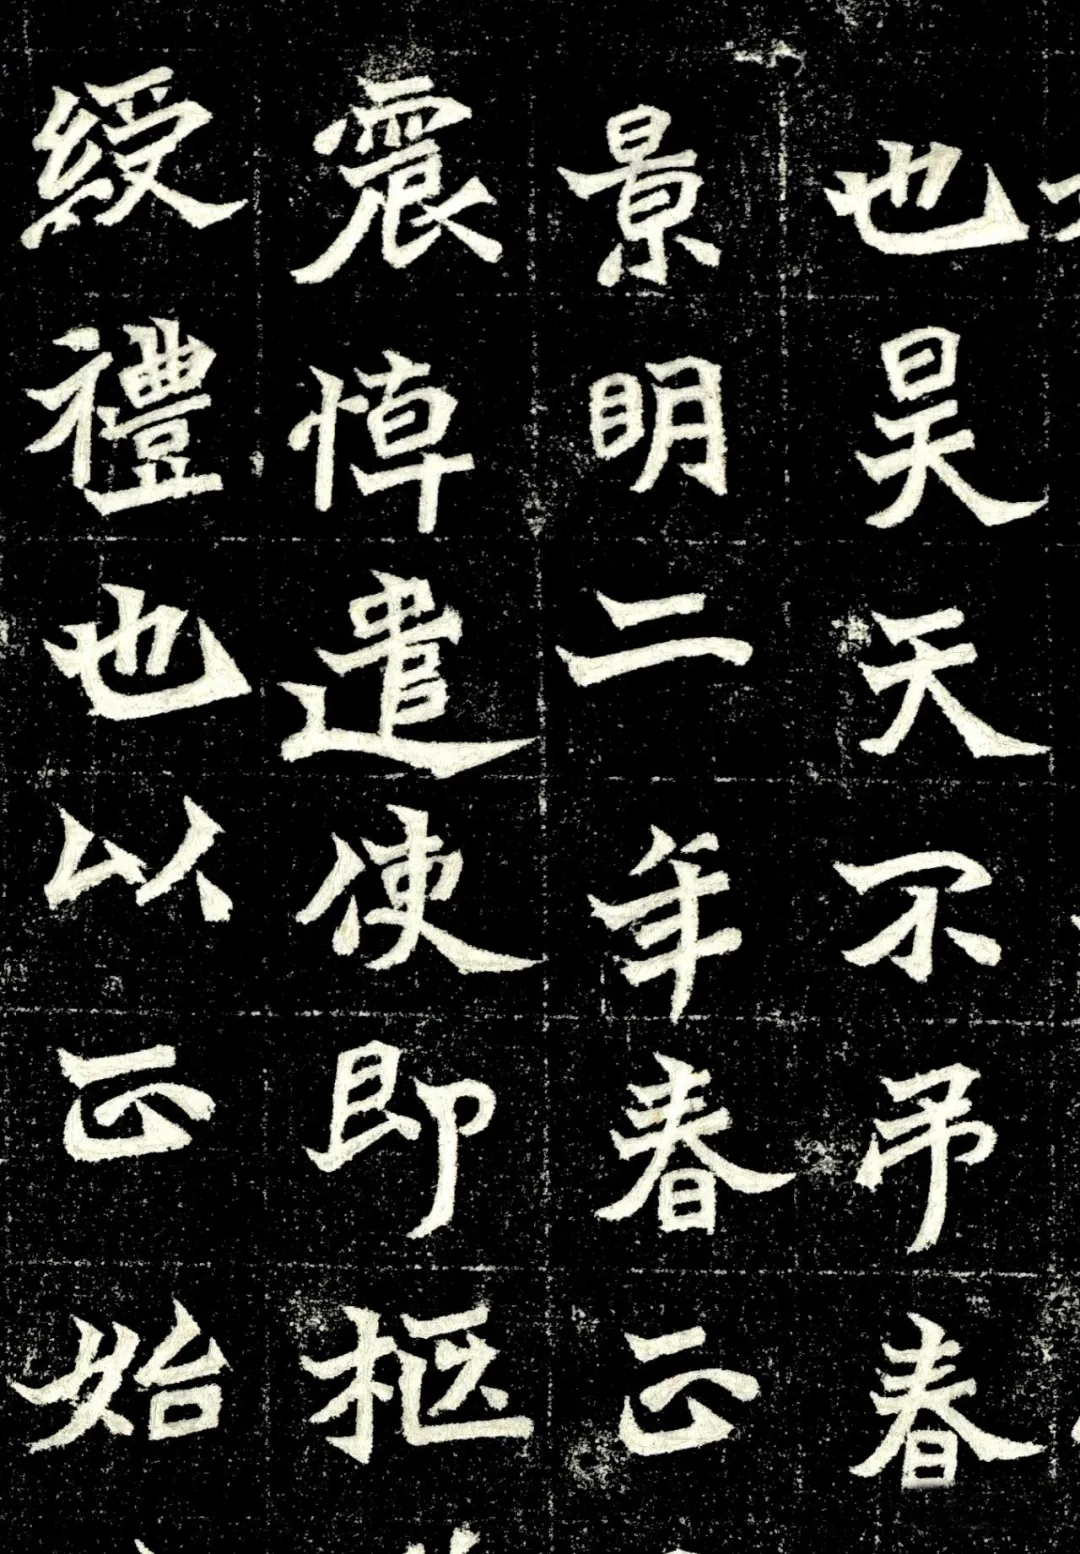 也昊天不吊春
景明二年春正
震悼遣使即柩
綬禮也以正始